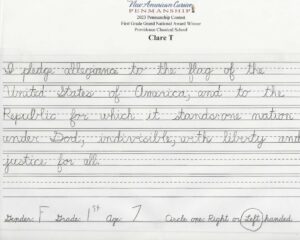 New American Cursive
PENMANSHIP
2023 Penmanship Contest
First Grade Grand National Award Winner
Providence Classical School
Clare T
I pledge allegiance to the flag of the
United States of America, and to the
Republic for which it stands:one nation
under God, indivisible, with liberty and
justice for all.
Gender: F Grade: 1st Age: 7 Circle one: Right or Left handed